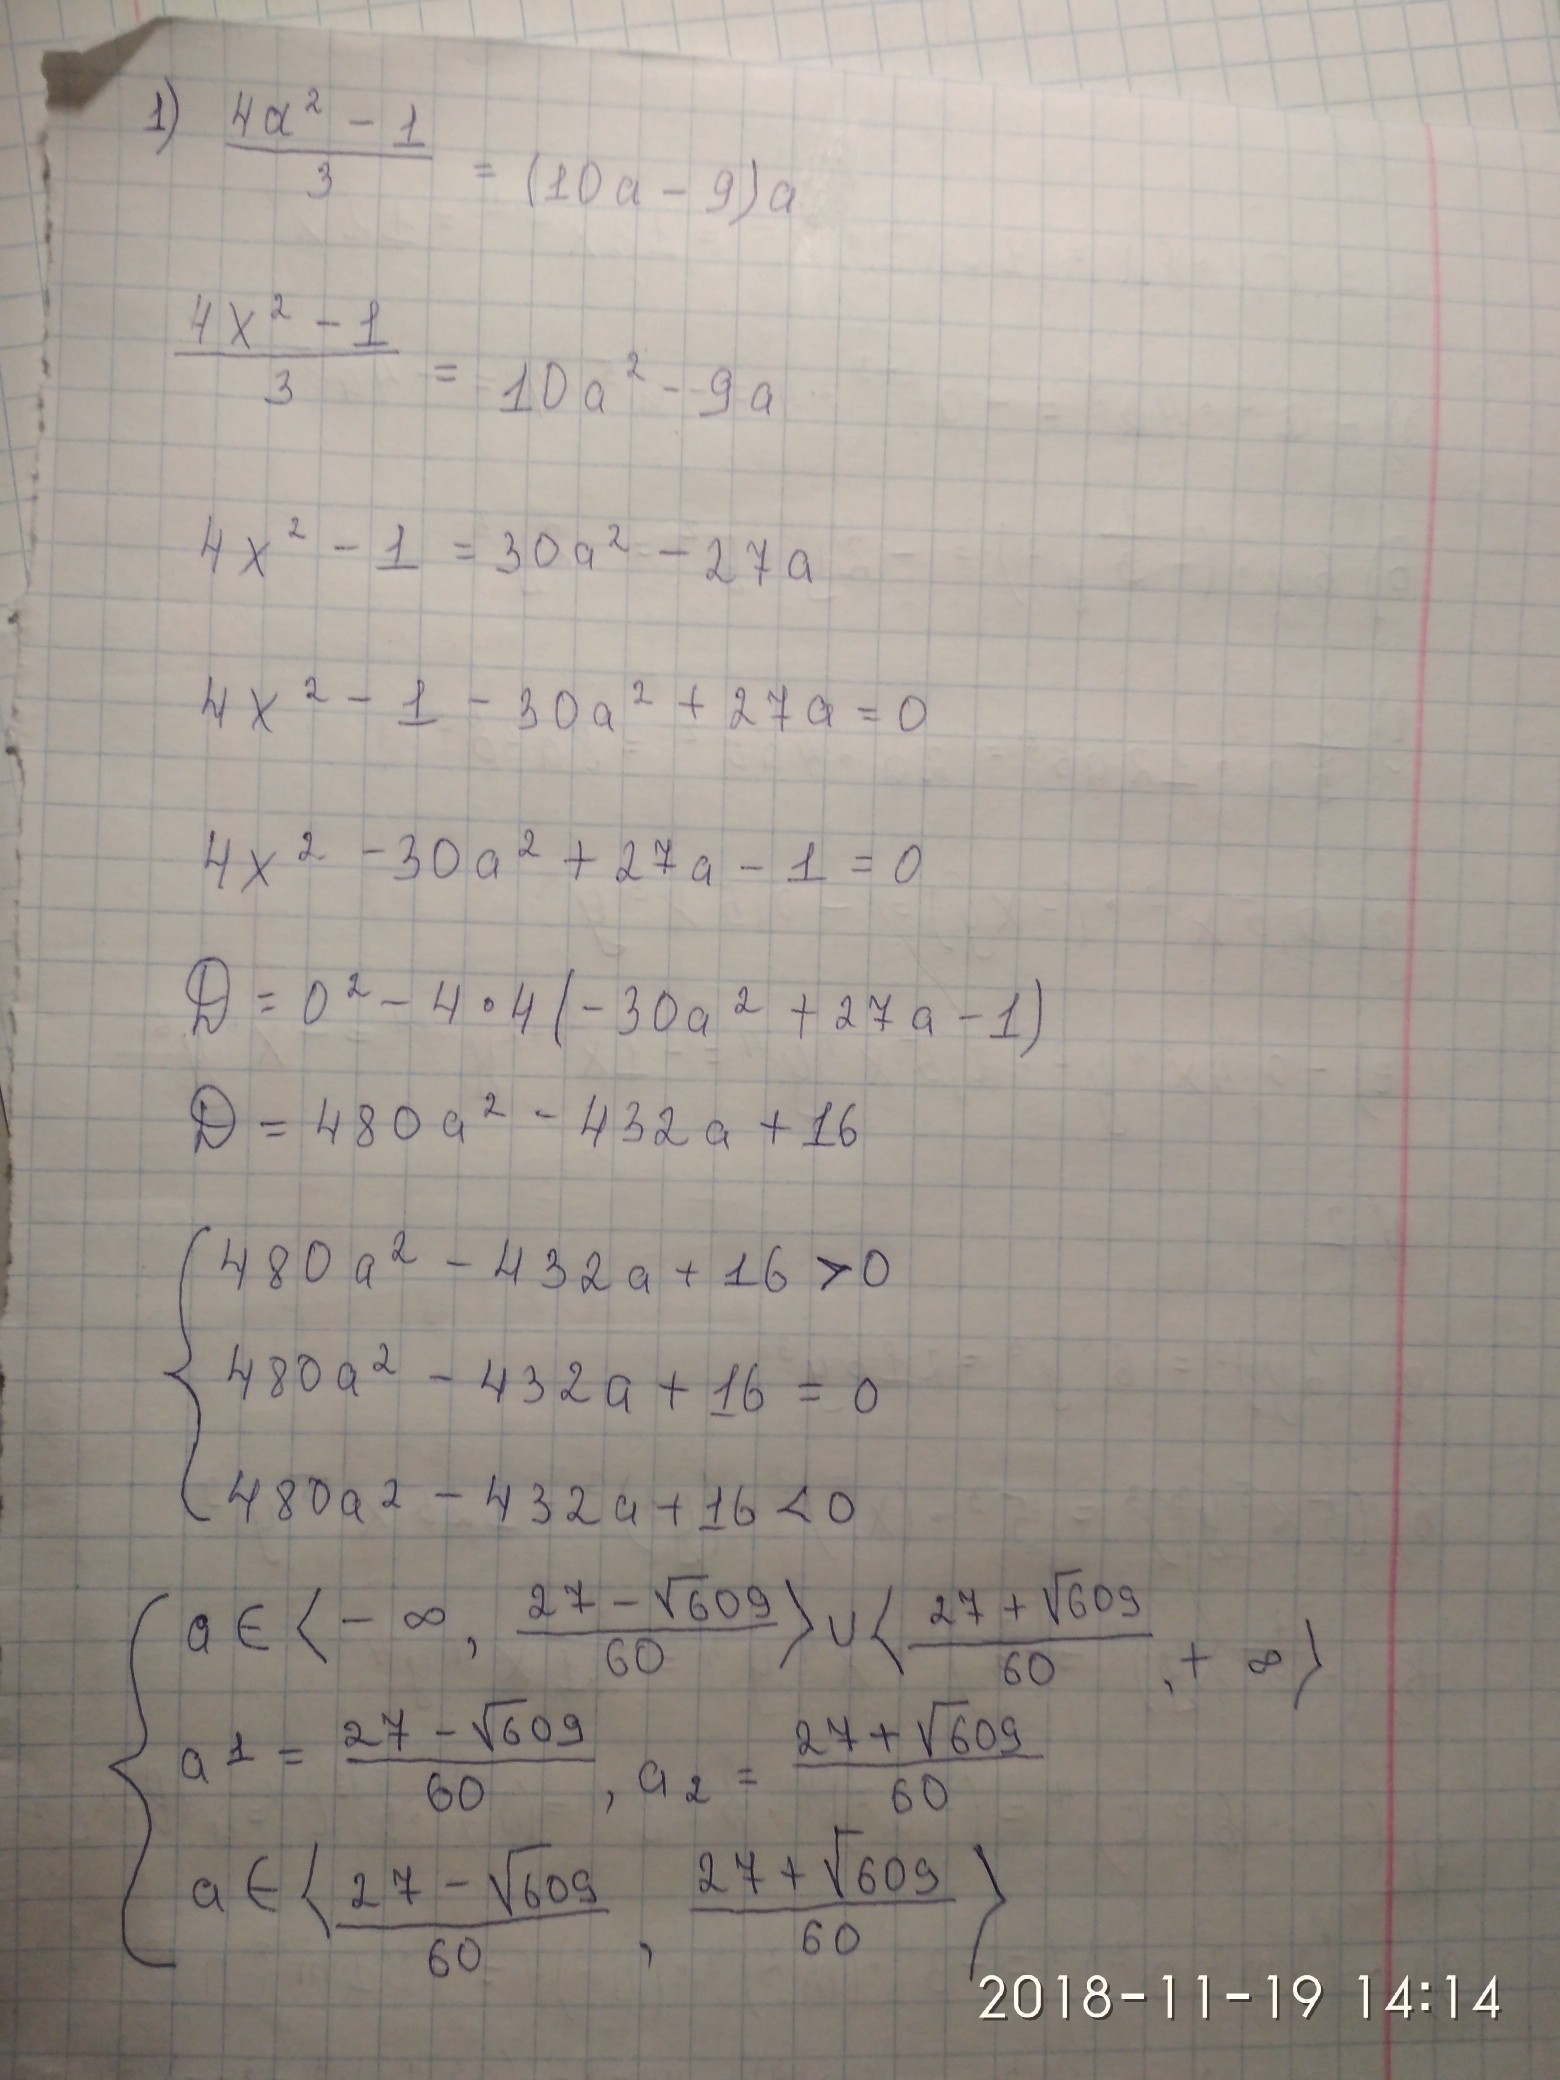 1) (4a² - 1)/3 = (10a - 9)a
(4x² - 1)/3 = 10a² - 9a
4x² - 1 = 30a² - 27a
4x² - 1 - 30a² + 27a = 0
4x² - 30a² + 27a - 1 = 0
D = 0² - 4•4(-30a² + 27a - 1)
D = 480a² - 432a + 16
{ 480a² - 432a + 16 > 0
480a² - 432a + 16 = 0
480a² - 432a + 16 < 0
{ a ∈ ⟨-∞, (27 - √609)/60⟩ ∪ ⟨(27 + √609)/60, +∞⟩
a1 = (27 - √609)/60, a₂ = (27 + √609)/60
a ∈ ⟨(27 - √609)/60, (27 + √609)/60⟩
2018-11-19 14:14